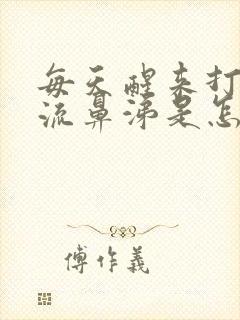 每天醒来打
流鼻涕是怎
傅作義